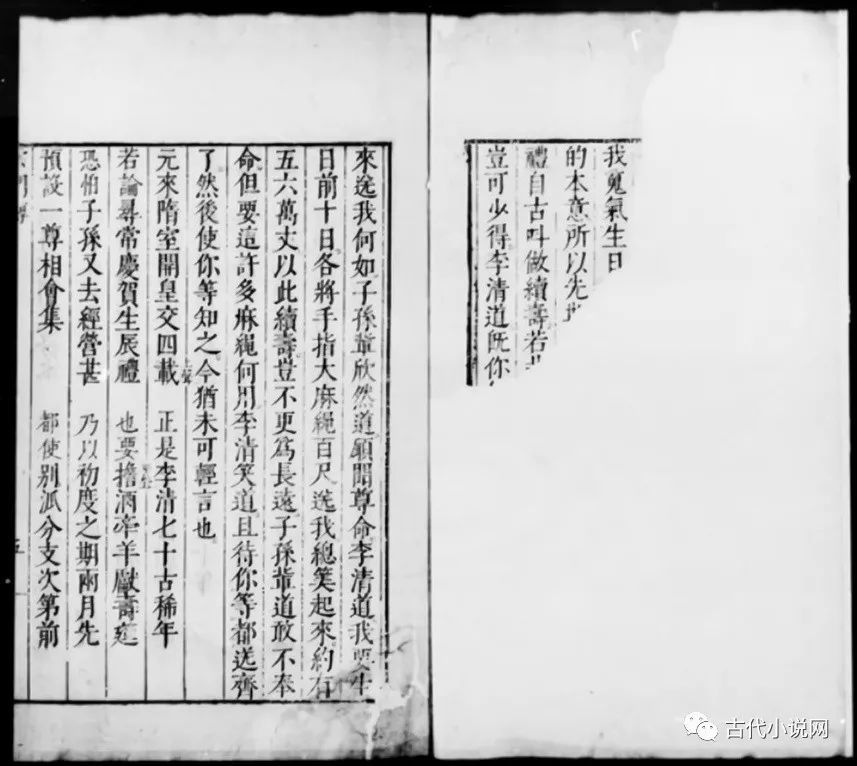 我蒐氣生日
的本意所以先
禮自古叫做續壽若
豈可少得李清道既你
來送我何如子孫輩欣然道願聞尊命李清道我要生
日前十日各將手指大麻繩百尺送我總筭起來約有
五六萬丈以此續壽豈不更爲長遠子孫輩道敢不奉
命但要這許多麻繩何用李清笑道且待你等都送齊
了然後使你等知之今猶未可輕言也
元來隋室開皇交四載 正是李清七十古稀年
若論尋常慶賀生辰禮 也要擔酒牽羊獻壽筵
恐怕子孫又去經營甚 乃以初度之期兩月先
預設一尊相會集 都使別派分支次第前
五
古代小说网